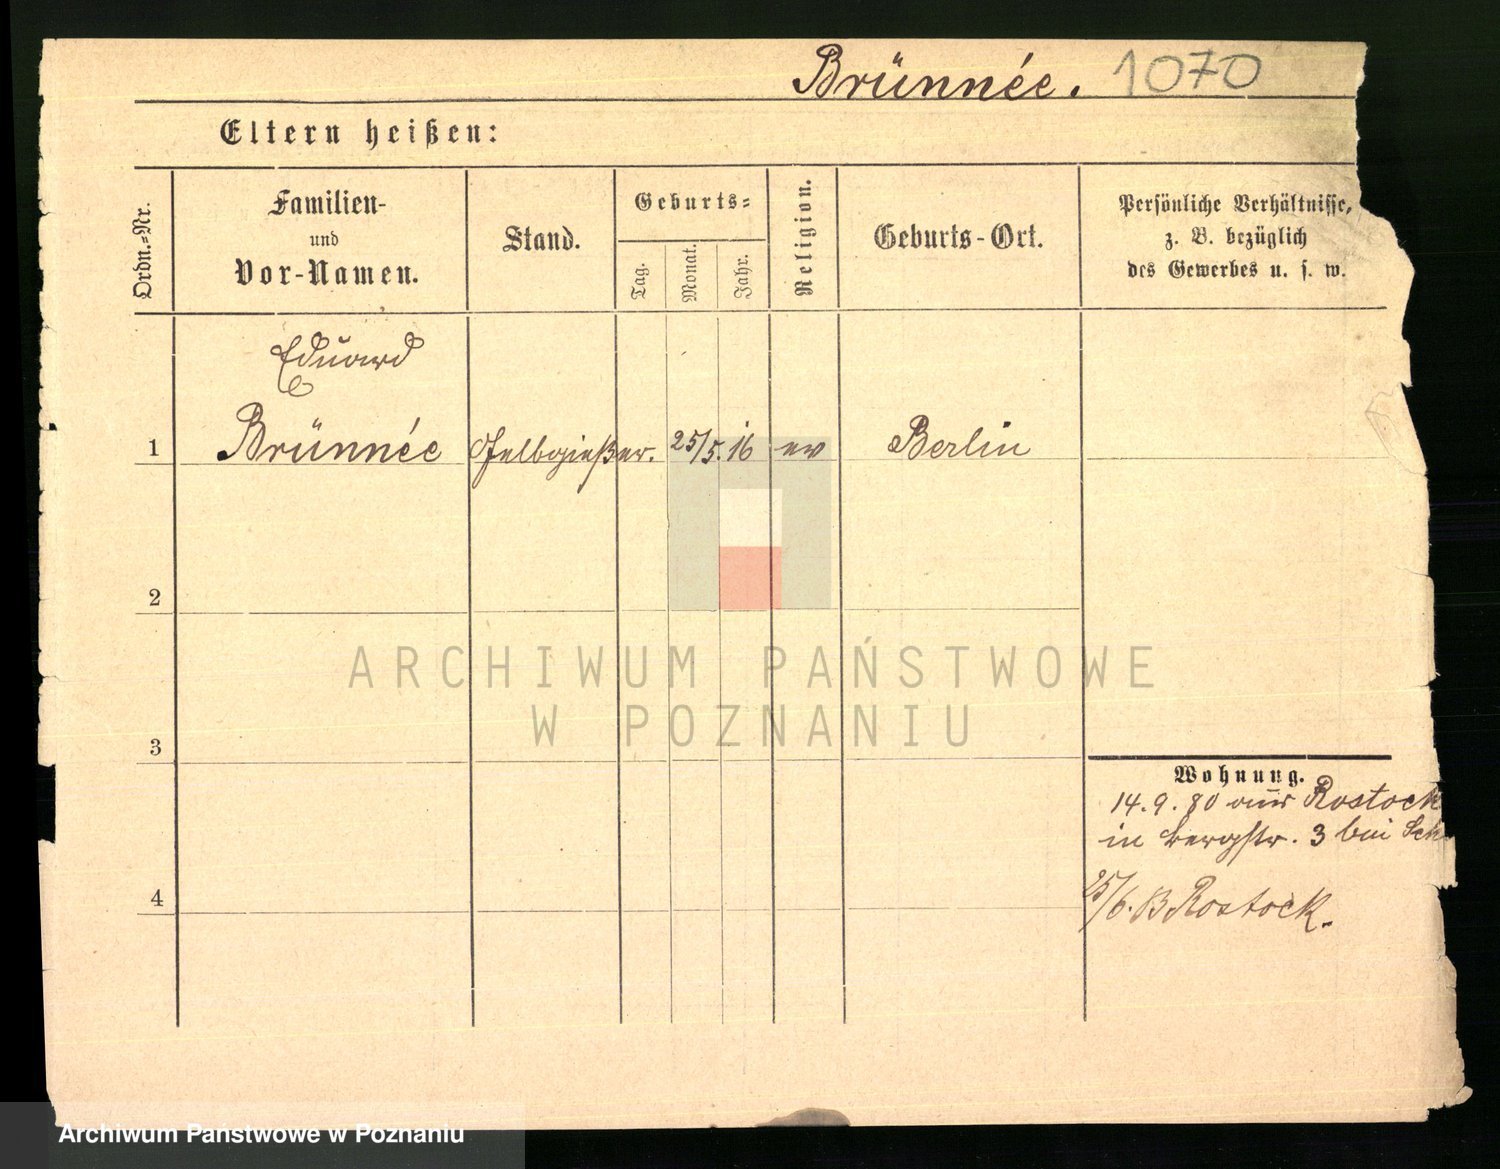 Brünnée. 1070
Eltern heißen:
Ordn.=Nr.
Familien-
und
Vor-Namen.
Stand.
Geburts=
Tag.
Monat.
Jahr.
Religion.
Geburts-Ort.
Persönliche Verhältnisse,
z. B. bezüglich
des Gewerbes u. s. w.
Eduard
1 Brünnée Gelbgießer. 25/5. 16 ev Berlin
2
3
4
Wohnung.
14. 9. 80 aus Rostock
in Bergstr. 3 bei Sch
25/6. B Rostock.
ARCHIWUM PAŃSTWOWE
W POZNANIU
Archiwum Państwowe w Poznaniu